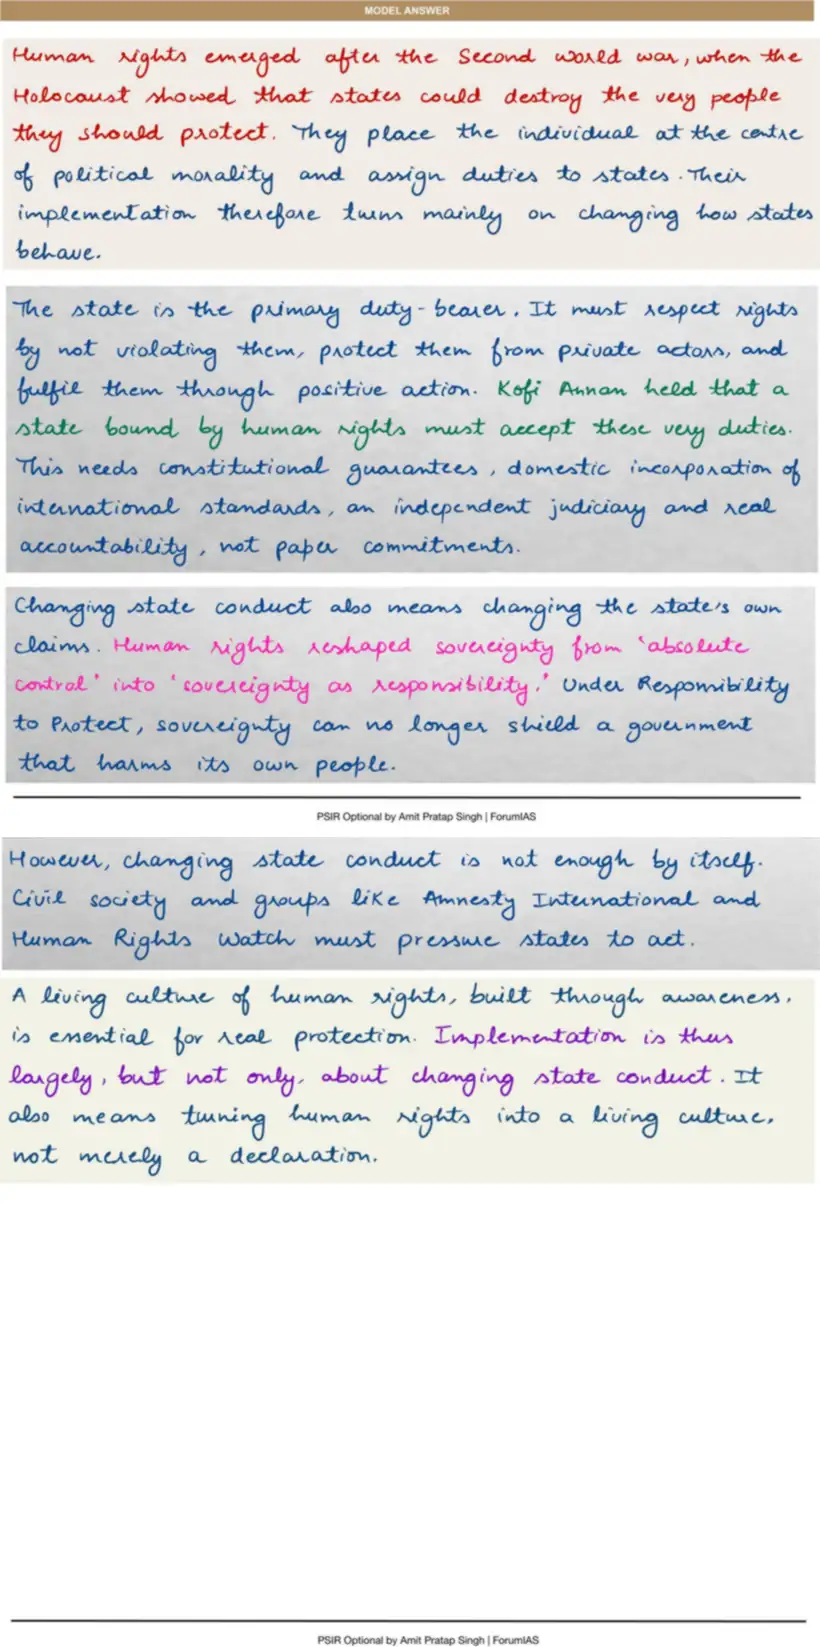 MODEL ANSWER
Human rights emerged after the Second world war, when the
Holocaust showed that states could destroy the very people
they should protect. They place the individual at the centre
of political morality and assign duties to states. Their
implementation therefore turns mainly on changing how states
behave.
The state is the primary duty-bearer. It must respect rights
by not violating them, protect them from private actors, and
fulfil them through positive action. Kofi Annan held that a
state bound by human rights must accept these very duties.
This needs constitutional guarantees, domestic incorporation of
international standards, an independent judiciary and real
accountability, not paper commitments.
Changing state conduct also means changing the state's own
claims. Human rights reshaped sovereignty from 'absolute
control' into 'sovereignty as responsibility.' Under Responsibility
to Protect, sovereignty can no longer shield a government
that harms its own people.
PSIR Optional by Amit Pratap Singh | ForumIAS
However, changing state conduct is not enough by itself.
Civil society and groups like Amnesty International and
Human Rights Watch must pressure states to act.
A living culture of human rights, built through awareness,
is essential for real protection. Implementation is thus
largely, but not only, about changing state conduct. It
also means turning human rights into a living culture,
not merely a declaration.
PSIR Optional by Amit Pratap Singh | ForumIAS